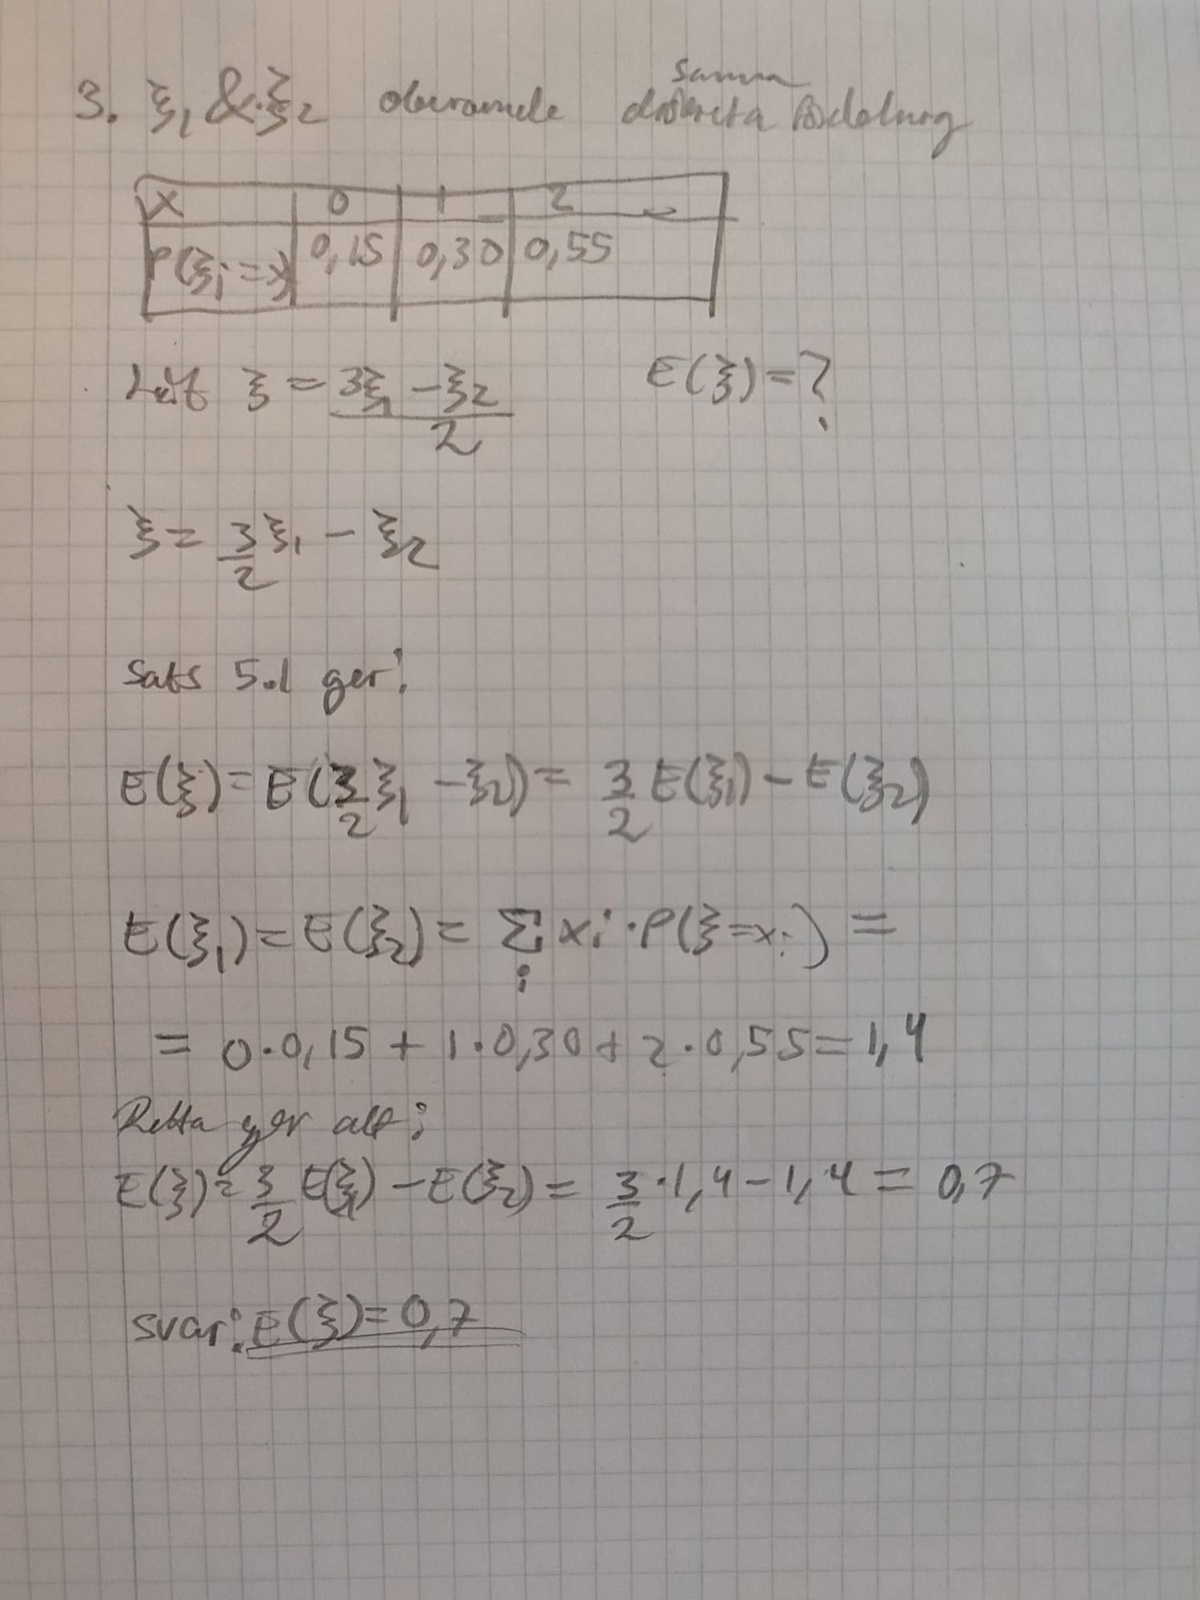 3. ξ₁ & ξ₂ oberoende samma diskreta fördelning
x 0 1 2
P(ξᵢ=x) 0,15 0,30 0,55
Låt ξ = (3ξ₁ - ξ₂)/2 E(ξ) = ?
ξ = 3/2 ξ₁ - ξ₂
Sats 5.1 ger:
E(ξ) = E(3/2 ξ₁ - ξ₂) = 3/2 E(ξ₁) - E(ξ₂)
E(ξ₁) = E(ξ₂) = Σᵢ xᵢ · P(ξ=xᵢ) =
= 0·0,15 + 1·0,30 + 2·0,55 = 1,4
Detta ger att:
E(ξ) = 3/2 E(ξ₁) - E(ξ₂) = 3/2 · 1,4 - 1,4 = 0,7
svar: E(ξ) = 0,7